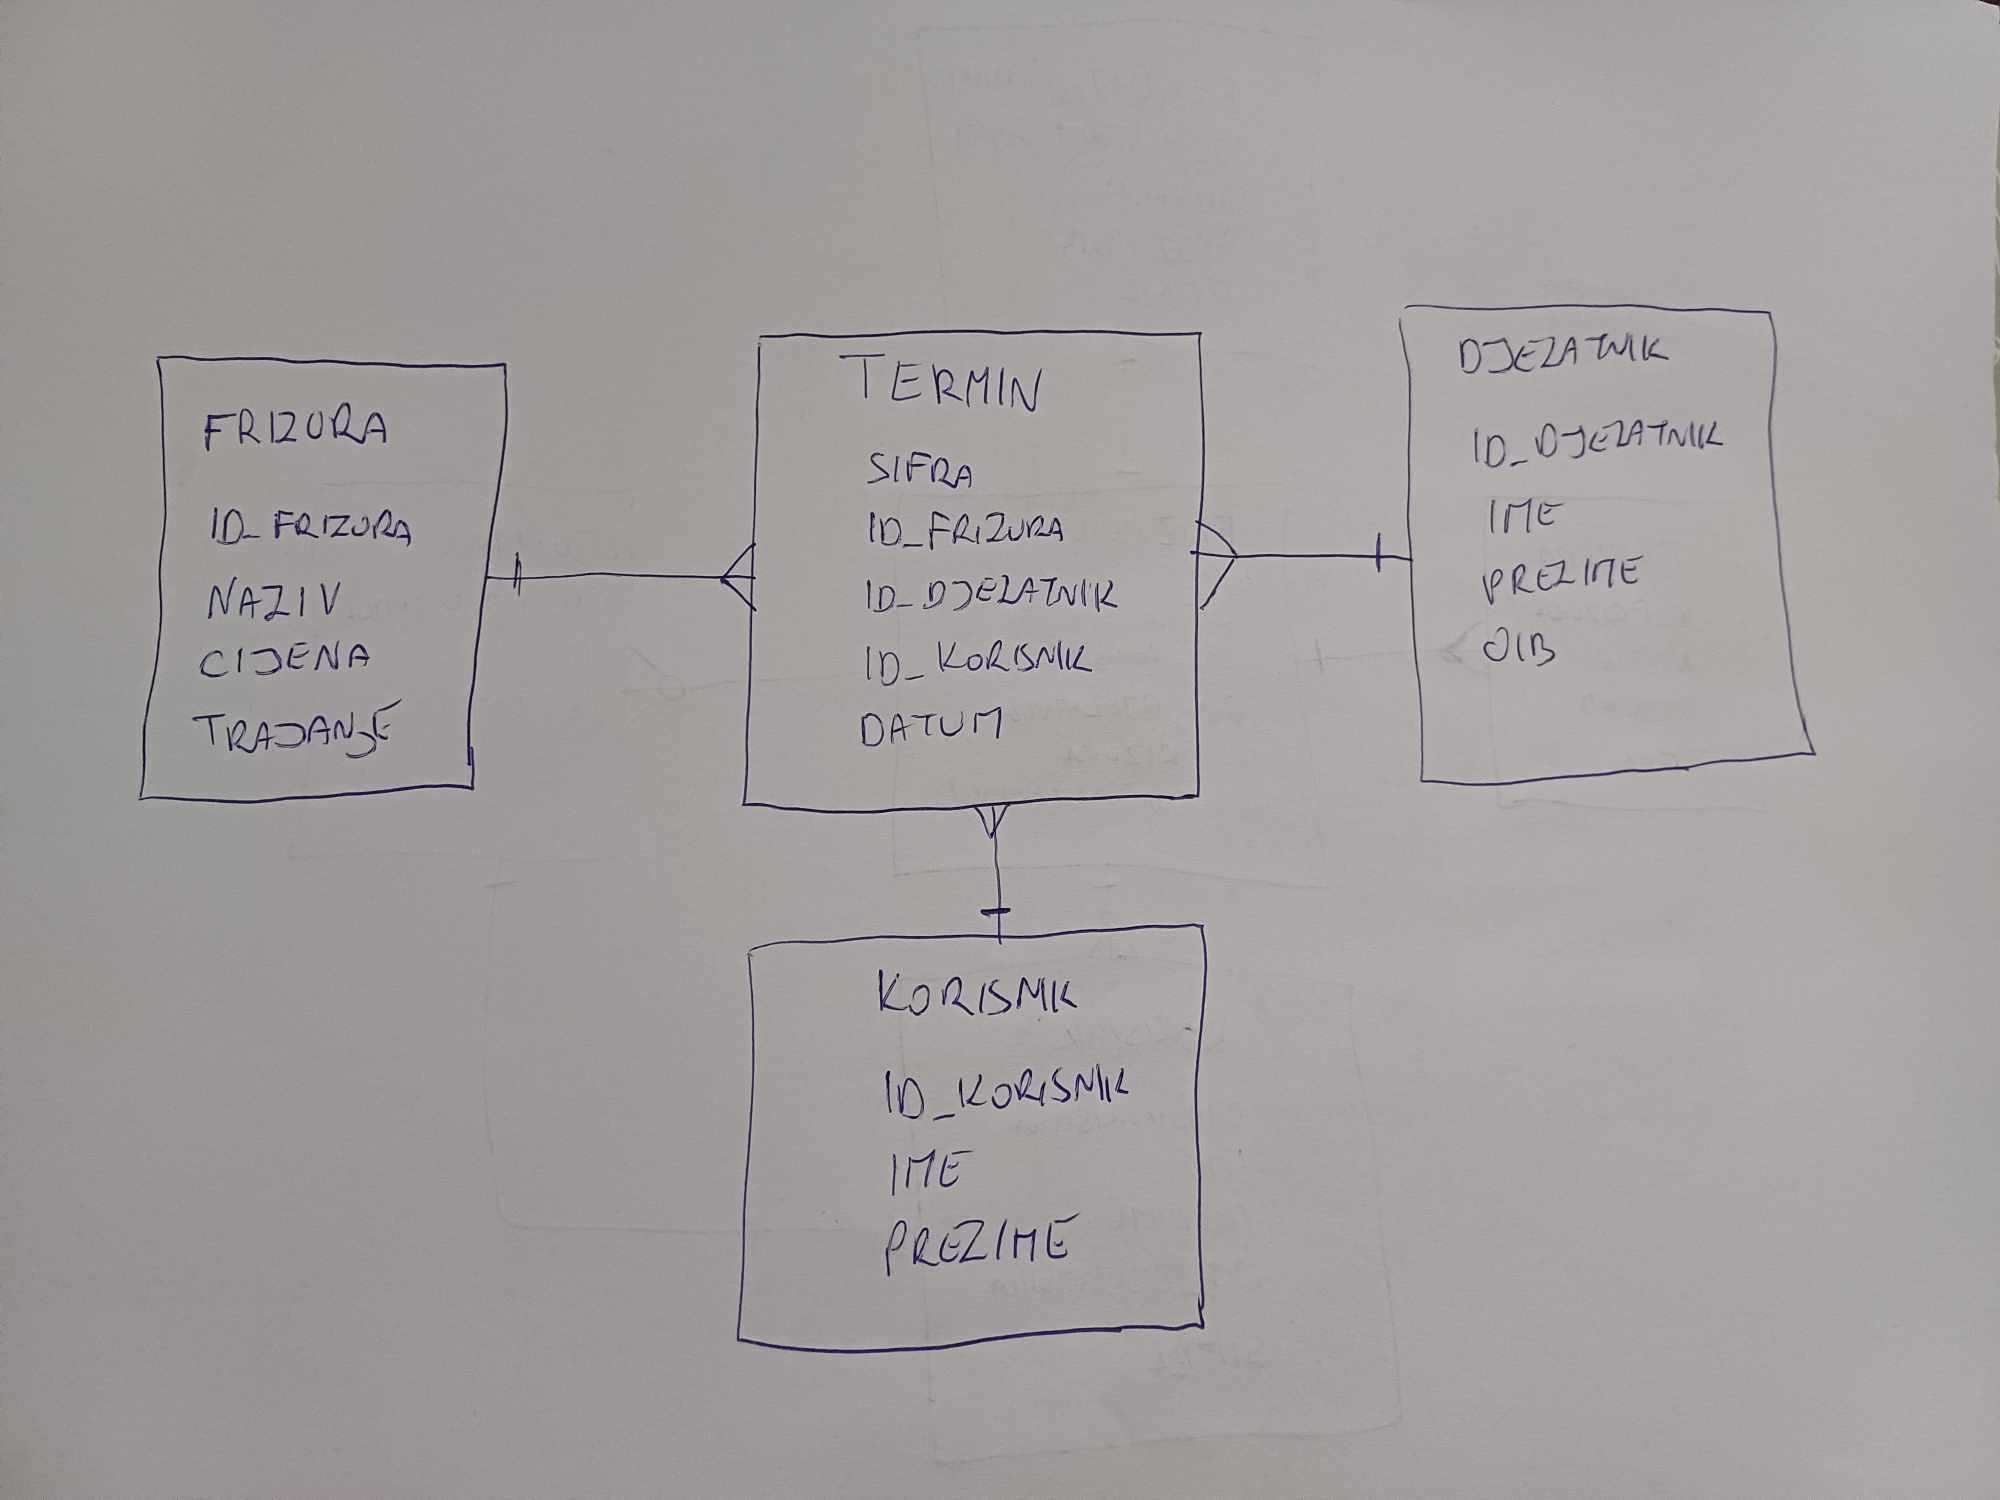 FRIZURA
ID_FRIZURA
NAZIV
CIJENA
TRAJANJE
TERMIN
SIFRA
ID_FRIZURA
ID_DJEZATNIK
ID_KORISNIK
DATUM
DJEZATNIK
ID_DJEZATNIK
IME
PREZIME
OIB
KORISNIK
ID_KORISNIK
IME
PREZIME